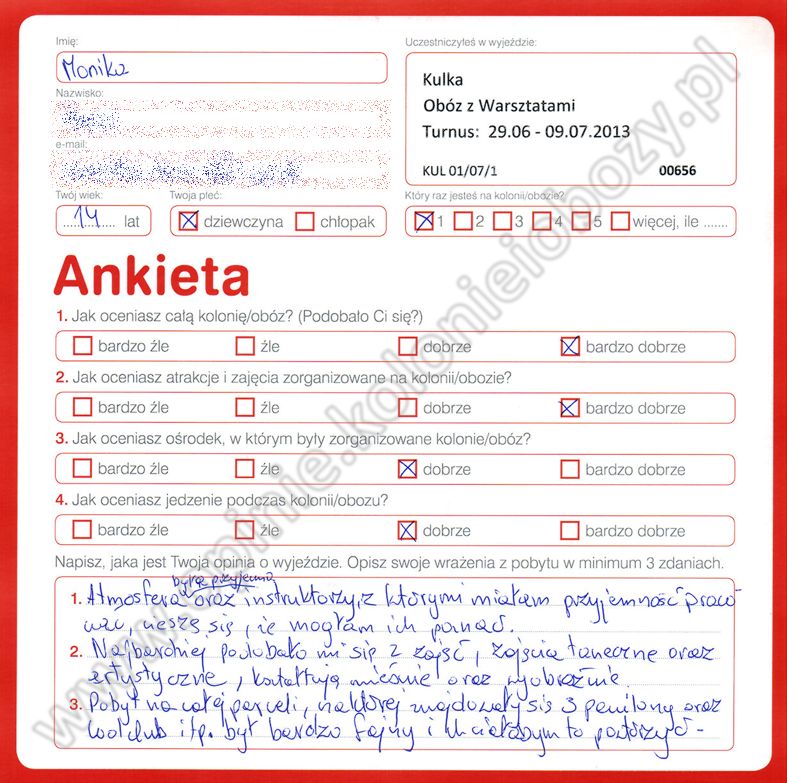 Imię:
Uczestniczyłeś w wyjeździe:
Monika
Kulka
Obóz z Warsztatami
Turnus: 29.06 - 09.07.2013
KUL 01/07/1 00656
Nazwisko:
e-mail:
Twój wiek: Twoja płeć: Który raz jesteś na kolonii/obozie?
14 lat dziewczyna chłopak 1 2 3 4 5 więcej, ile .......
Ankieta
1. Jak oceniasz całą kolonię/obóz? (Podobało Ci się?)
bardzo źle źle dobrze bardzo dobrze
2. Jak oceniasz atrakcje i zajęcia zorganizowane na kolonii/obozie?
bardzo źle źle dobrze bardzo dobrze
3. Jak oceniasz ośrodek, w którym były zorganizowane kolonie/obóz?
bardzo źle źle dobrze bardzo dobrze
4. Jak oceniasz jedzenie podczas kolonii/obozu?
bardzo źle źle dobrze bardzo dobrze
Napisz, jaka jest Twoja opinia o wyjeździe. Opisz swoje wrażenia z pobytu w minimum 3 zdaniach.
była przyjemna,
1. Atmosfera oraz instruktorzy, z którymi miałam przyjemność praco
wać, cieszę się, że mogłam ich poznać.
2. Najbardziej podobało mi się z zajęć, zajęcia taneczne oraz
artystyczne, kształtują mięśnie oraz wyobraźnie.
3. Pobyt na całej parceli, na której znajdowały się 3 pawilony oraz
coolclub itp. był bardzo fajny i chciałabym to powtórzyć-
www.opinie.kolonieiobozy.pl